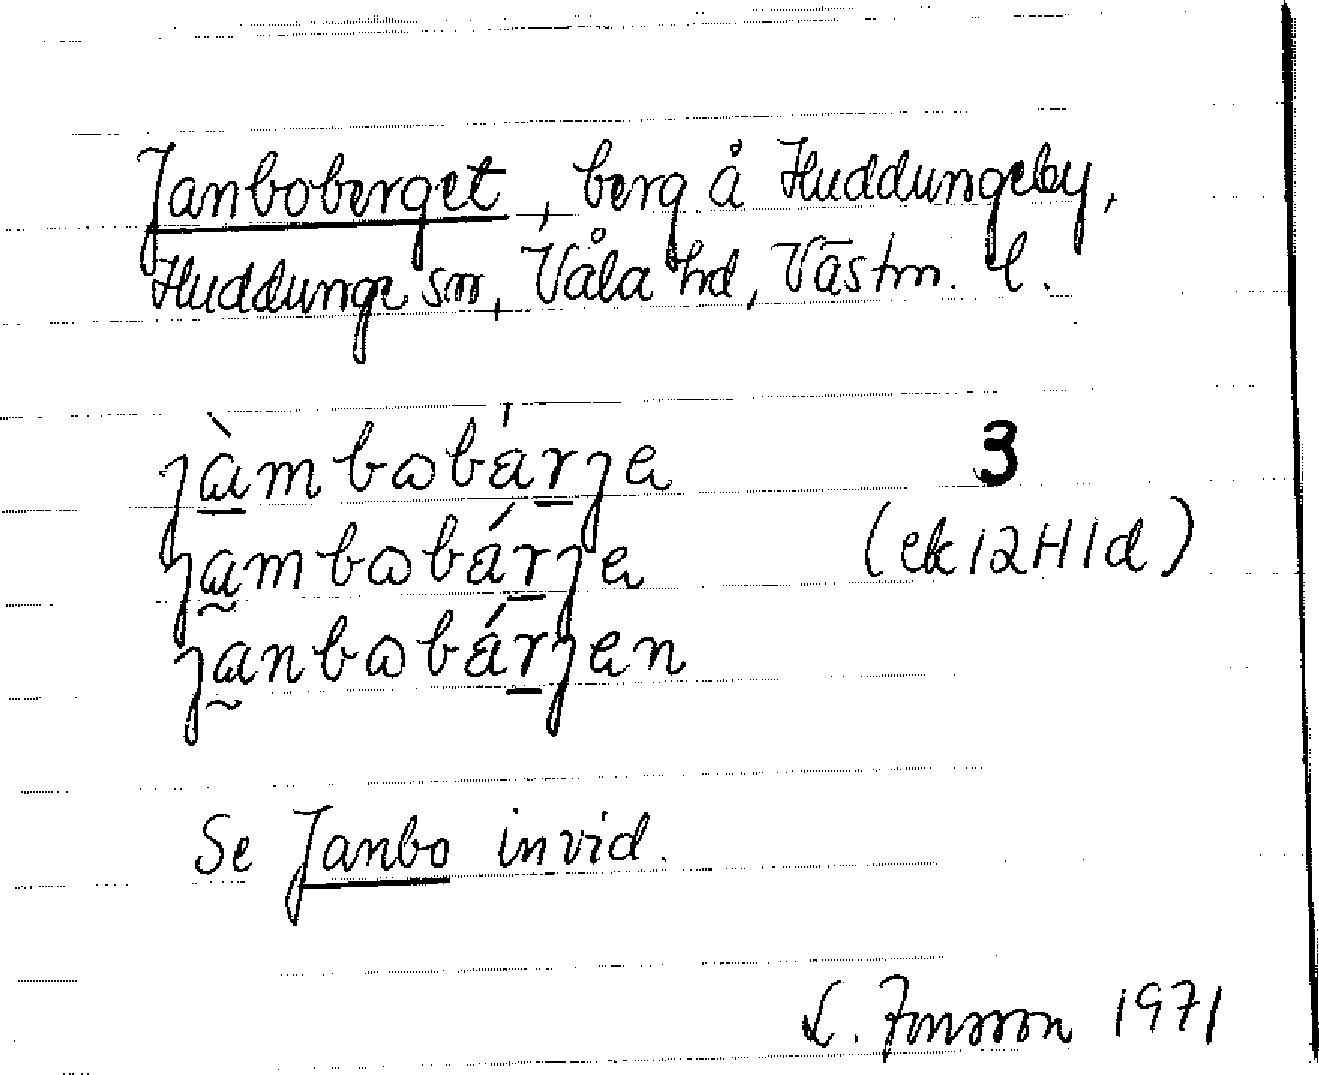 Janboberget, berg å Huddungeby,
Huddunge sn, Våla hd, Västm. l.
jàmbωbárje 3
jambωbárje (ek 12H1d)
janbωbárjen
Se Janbo invid.
L. Jonsson 1971